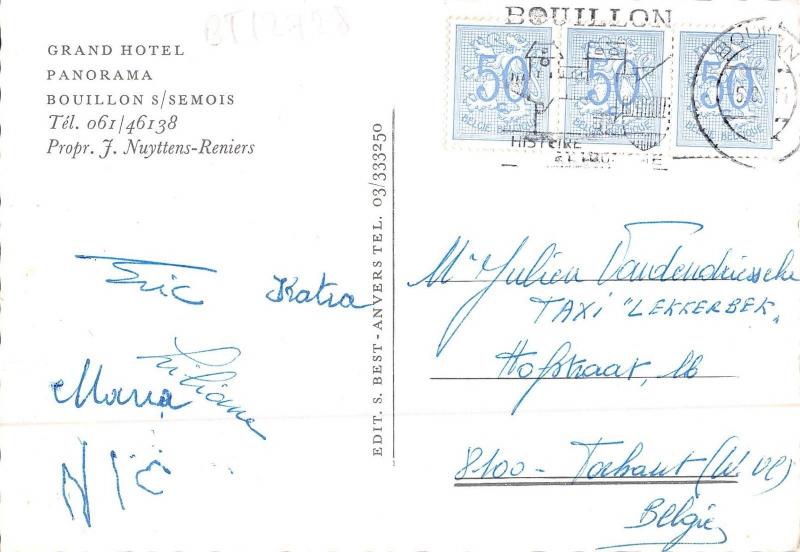 BT12728
GRAND HOTEL
PANORAMA
BOUILLON S/SEMOIS
Tél. 061/46138
Propr. J. Nuyttens-Reniers
Eric
Katia
Liliane
Maria
NIC
EDIT. S. BEST - ANVERS TEL. 03/333250
BOUILLON
50 50 50
BELGIE BELGIQUE BELGIE BELGIQUE BELGIE BELGIQUE
HISTOIRE
BOUILLON
Mr Julien Vandendriessche
TAXI "LEKKERBEK"
Hofstraat, 16
8100 - Torhout (W. Vl)
België